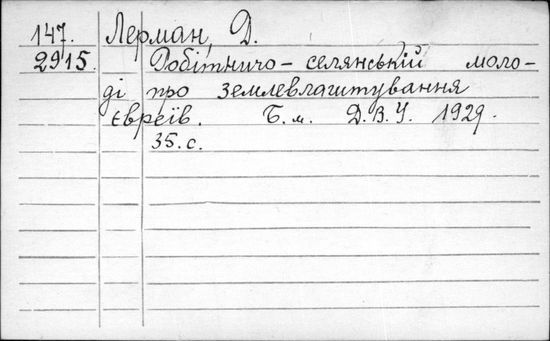 147. Лерман, Д.
2915. Робітничо-селянській моло-
ді про землевлаштування
євреїв. Б.м. Д.В.У. 1929.
35.с.